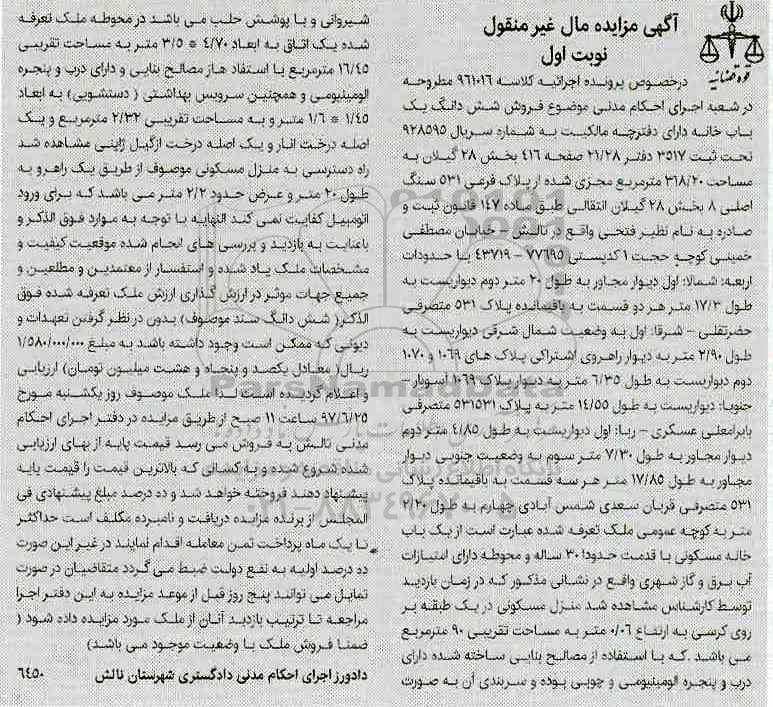 آگهی مزایده مال غیر منقول
نوبت اول
قوه قضائیه
درخصوص پرونده اجرائیه کلاسه ۹۶۱۰۱۶ مطروحه
در شعبه اجرای احکام مدنی موضوع فروش شش دانگ یک
باب خانه دارای دفترچه مالکیت به شماره سریال ۹۲۸۵۹۵
تحت ثبت ۳۵۱۷ دفتر ۲۱/۲۸ صفحه ۴۱۶ بخش ۲۸ گیلان به
مساحت ۳۶۸/۲۰ مترمربع مجزی شده از پلاک فرعی ۵۳۱ سنگ
اصلی ۸ بخش ۲۸ گیلان انتقالی طبق ماده ۱۴۷ قانون ثبت و
صادره به نام نظیر فتحی واقع در تالش – خیابان مصطفی
خمینی کوچه حجت ۱ کدپستی ۷۷۶۹۵ – ۴۳۷۱۹ با حدودات
اربعه: شمالا: اول دیوار مجاور به طول ۲۰ متر دوم دیواریست به
طول ۱۷/۳ متر هر دو قسمت به باقیمانده پلاک ۵۳۱ متصرفی
حضرتقلی – شرقا: اول به وضعیت شمال شرقی دیواریست به
طول ۲/۹۰ متر به دیوار راهروی اشتراکی پلاک های ۱۰۶۹ و ۱۰۷۰
دوم دیواریست به طول ۶/۳۵ متر به دیوار پلاک ۱۰۶۹ اسوبار –
جنوبا: دیواریست به طول ۱۴/۵۵ متر به پلاک ۵۳۱۵۳۱ متصرفی
بابرامعلی عسکری – ربا: اول دیواریست به طول ۴/۸۵ متر دوم
دیوار مجاور به طول ۷/۳۰ متر سوم به وضعیت جنوبی دیوار
مجاور به طول ۱۷/۸۵ متر هر سه قسمت به باقیمانده پلاک
۵۳۱ متصرفی قربان سعدی شمس آبادی چهارم به طول ۲/۲۰
متر به کوچه عمومی ملک تعرفه شده عبارت است از یک باب
خانه مسکونی با قدمت حدودا ۳۰ ساله و محوطه دارای امتیازات
آب برق و گاز شهری واقع در نشانی مذکور که در زمان بازدید
توسط کارشناس مشاهده شد منزل مسکونی در یک طبقه بر
روی کرسی به ارتفاع ۰/۰۶ متر به مساحت تقریبی ۹۰ مترمربع
می باشد .که با استفاده از مصالح بنایی ساخته شده دارای
درب و پنجره الومینیومی و چوبی بوده و سربندی آن به صورت
شیروانی و با پوشش حلب می باشد در محوطه ملک تعرفه
شده یک اتاق به ابعاد ۴/۷۰ * ۳/۵ متر به مساحت تقریبی
۱۶/۴۵ مترمربع با استفاد هاز مصالح بنایی و دارای درب و پنجره
الومینیومی و همچنین سرویس بهداشتی ( دستشویی) به ابعاد
۱/۴۵ * ۱/۶ متر و به مساحت تقریبی ۲/۳۲ مترمربع و یک
اصله درخت انار و یک اصله درخت ازگیل ژاپنی مشاهده شد
راه دسترسی به منزل مسکونی موصوف از طریق یک راهرو به
طول ۲۰ متر و عرض حدود ۲/۲ متر می باشد که برای ورود
اتومبیل کفایت نمی کند النهایه با توجه به موارد فوق الذکر و
باعنایت به بازدید و بررسی های انجام شده موقعیت کیفیت و
مشخصات ملک یاد شده و استفسار از معتمدین و مطلعین و
جمیع جهات موثر در ارزش گذاری ارزش ملک تعرفه شده فوق
الذکر( شش دانگ سند موصوف) بدون در نظر گرفتن تعهدات و
دیونی که ممکن است وجود داشته باشد به مبلغ ۱/۵۸۰/۰۰۰/۰۰۰
ریال( معادل یکصد و پنجاه و هشت میلیون تومان) ارزیابی
و اعلام گردیده است لذا ملک موصوف روز یکشنبه مورخ
۹۷/۶/۲۵ ساعت ۱۱ صبح از طریق مزایده در دفتر اجرای احکام
مدنی تالش به فروش می رسد قیمت پایه از بهای ارزیابی
شده شروع شده و به کسانی که بالاترین قیمت را قیمت پایه
پیشنهاد دهند فروخته خواهد شد و ده درصد مبلغ پیشنهادی فی
المجلس از برنده مزایده دریافت و نامبرده مکلف است حداکثر
تا یک ماه پرداخت ثمن معامله اقدام نمایند در غیر این صورت
ده درصد اولیه به نفع دولت ضبط می گردد متقاضیان در صورت
تمایل می توانند پنج روز قبل از موعد مزایده به این دفتر اجرا
مراجعه تا ترتیب بازدید آنان از ملک مورد مزایده داده شود (
ضمنا فروش ملک با وضعیت موجود می باشد)
دادورز اجرای احکام مدنی دادگستری شهرستان تالش ۶۴۵۰
ParsNamadData